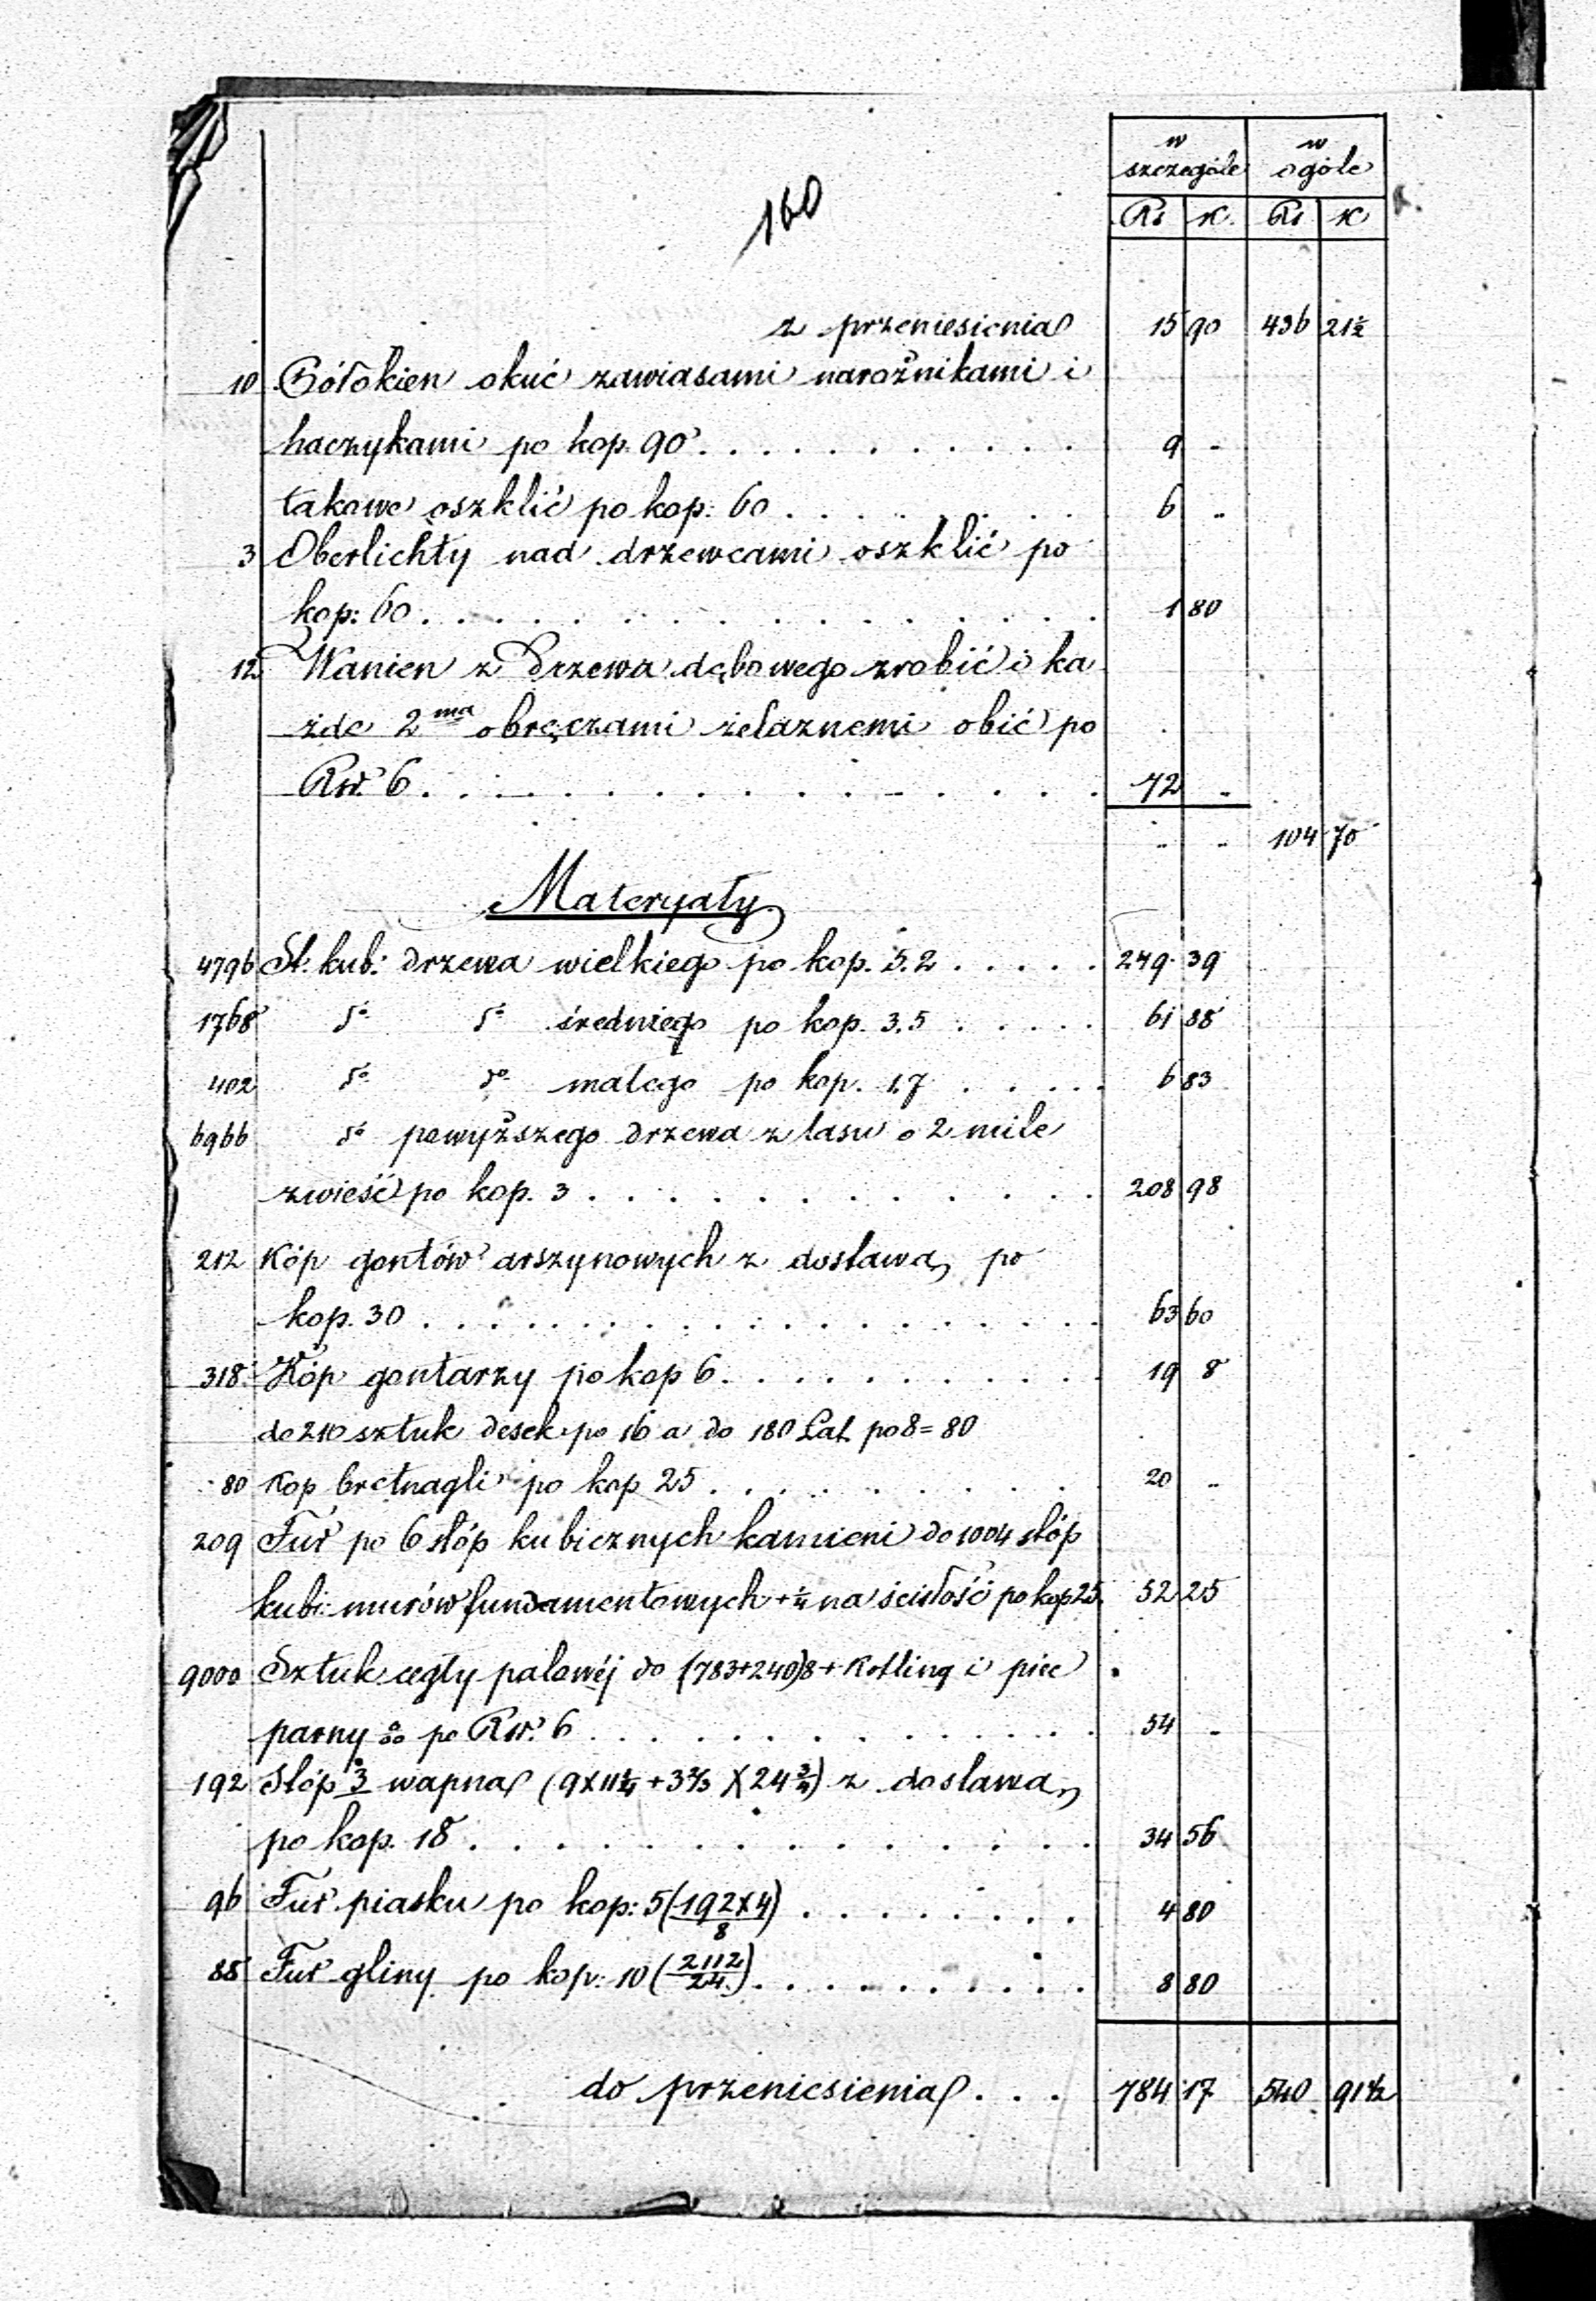 160
w szczególe w ogóle
Rs K. Rs K
z przeniesienia 15 90 436 21½
10 Półokien okuć zawiasami narożnikami i
haczykami po kop. 90 . . . . . . . . . . . 9 -
takowe oszklić po kop: 60 . . . . . . . . . 6 ..
3 Oberlichty nad drzewcami oszklić po
kop: 60 . . . . . . . . . . . . . . . 1 80
12 Wanien z drzewa dębowego zrobić i ka
żde 2ma obręczami żelaznemi obić po
Rsr. 6 . . . . . . . . . . . . . . . 72 ..
.. .. 104 70
Materyały
4796 St. kub: drzewa wielkiego po kop. 5.2 . . . . . 249 39
1768 do do średniego po kop. 3.5 . . . . . 61 88
402 do do małego po kop. 1.7 . . . . 6 83
6966 do powyższego drzewa z lasu o 2 mile
zwieść po kop. 3 . . . . . . . . . . . . 208 98
212 Kóp gontów arszynowych z dostawą po
kop. 30 . . . . . . . . . . . . . . . 63 60
318 Kóp gontarzy po kop 6 . . . . . . . . . . . 19 8
do 210 sztuk desek po 16 a do 180 Łat po 8 = 80
80 Kop bretnagli po kop 25 . . . . . . . . . . 20 ..
209 Fur po 6 stóp kubicznych kamieni do 1004 stóp
kub: murów fundamentowych + ¼ na ścisłość po kop 25 52 25
9000 Sztuk cegły palonéj do (783+240)8 + Kotliną i piec
parny % po Rsr. 6 . . . . . . . . . . . . 54 -
192 Stóp 3 wapna (9×11¼ + 3⅔ × 24¾) z dostawą
po kop. 18 . . . . . . . . . . . . . . 34 56
96 Fur piasku po kop: 5 (192×4/8) . . . . . . . . 4 80
88 Fur gliny po kop: 10 (2112/24) . . . . . . . . . . 8 80
do przeniesienia . . . 784 17 540 91½